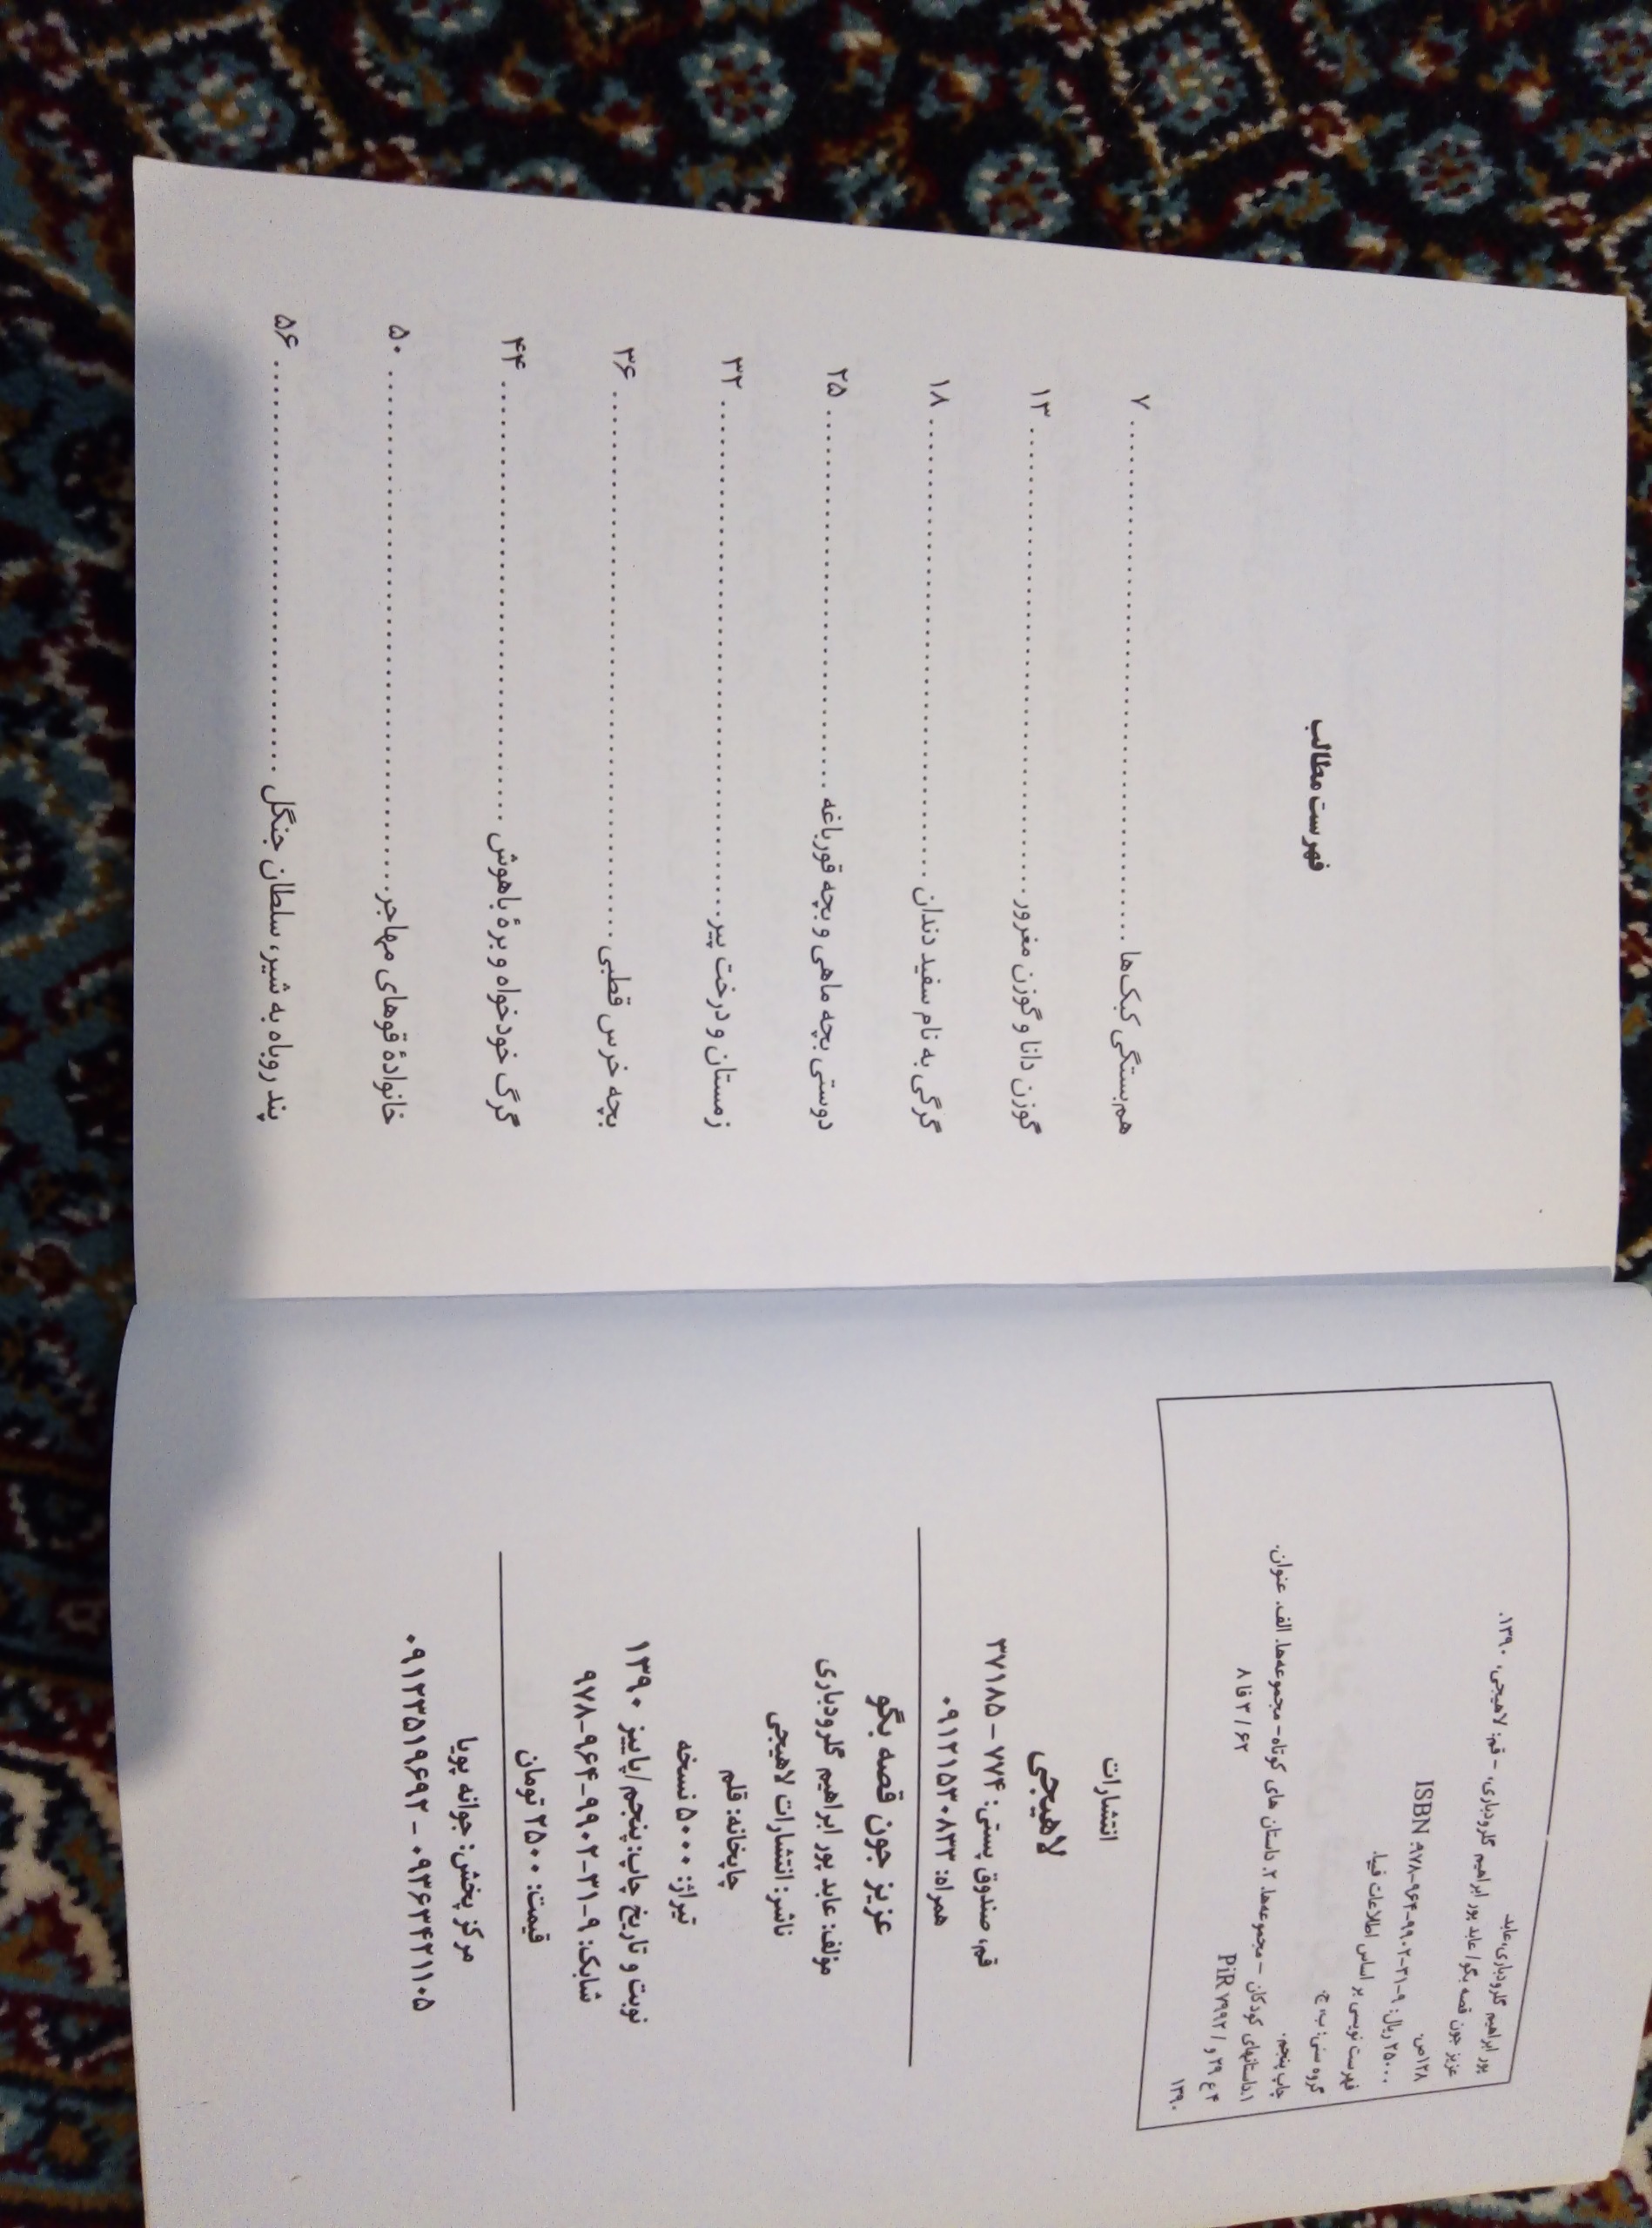 پور ابراهیم گلرودباری، عابد
عزیز جون قصه بگو / عابد پور ابراهیم گلرودباری. - قم: لاهیجی، ۱۳۹۰.
۱۲۸ص.
۲۵۰۰۰ ریال: ۹-۳۱-۹۹۰۲-۹۶۴-۹۷۸ ISBN
فهرست نویسی بر اساس اطلاعات فیپا.
گروه سنی: ب، ج.
چاپ پنجم.
۱.داستانهای کودکان - مجموعه‌ها. ۲. داستان های کوتاه - مجموعه‌ها. الف. عنوان.
۴ ع ۲۹ و / PiR ۷۹۹۲ ۸ فا ۳ / ۶۲
۱۳۹۰
انتشارات
لاهیجی
قم، صندوق پستی: ۷۷۴ - ۳۷۱۸۵
همراه: ۰۹۱۲۱۵۳۰۸۳۳
عزیز جون قصه بگو
مؤلف: عابد پور ابراهیم گلرودباری
ناشر: انتشارات لاهیجی
چاپخانه: قلم
تیراژ: ۵۰۰۰ نسخه
نوبت و تاریخ چاپ: پنجم/ پاییز ۱۳۹۰
شابک: ۹-۳۱-۹۹۰۲-۹۶۴-۹۷۸
قیمت: ۲۵۰۰ تومان
مرکز پخش: جوانه پویا
۰۹۱۲۳۵۱۹۶۹۲ - ۰۹۳۶۳۴۲۱۱۰۵
فهرست مطالب
هم‌بستگی کبک‌ها ........ ۷
گوزن دانا و گوزن مغرور ........ ۱۳
گرگی به نام سفید دندان ........ ۱۸
دوستی بچه ماهی و بچه قورباغه ........ ۲۵
زمستان و درخت پیر ........ ۳۲
بچه خرس قطبی ........ ۳۶
گرگ خودخواه و برهٔ باهوش ........ ۴۴
خانوادهٔ قوهای مهاجر ........ ۵۰
پند روباه به شیر، سلطان جنگل ........ ۵۶